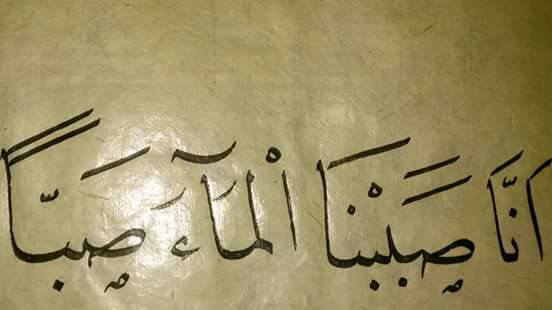 اَنَّا صَبَبْنَا الْمَآءَ صَبًّا